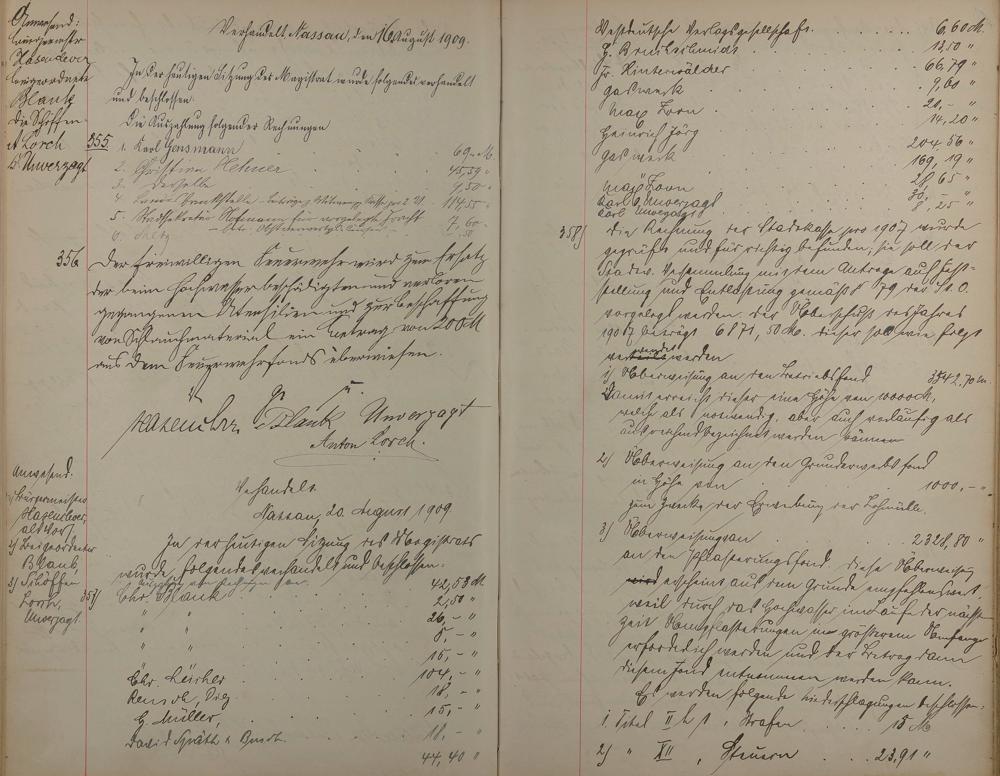 Anwesend:
Bürgermeister
Hasenclever
Beigeordneter
Blank
Die Schöffen
A Lorch
Unverzagt
Verhandelt Nassau, den 16 August 1909.
In der heutigen Sitzung des Magistrat wurde folgendes verhandelt
und beschlossen
Die Auszahlung folgender Rechnungen
355. 1. Karl Gensmann 69,- M.
2. Christian Hehner 45,59 "
3. Derselbe 9,50 "
4. 114,55 "
5. Stadtsekretär Hofmann für vorgelegte Fracht 7,60
6.
356 Der Freiwilligen Feuerwehr wird zum Ersatz
der beim Hochwasser beschädigten und verloren
gegangenen Utensilien und zur Beschaffung
von Schlauchmaterial ein Betrag von 200 M
aus dem Feuerwehrfonds überwiesen.
v. g. u.
Hasenclever Blank Unverzagt
Anton Lorch.
Anwesend.
1) Bürgermeister
Hasenclever,
als Vors.
2) Beigeordneter
Blank
3) Schöffen
Lorch,
Unverzagt.
Verhandelt
Nassau, 20. August 1909
In der heutigen Sitzung des Magistrats
wurde folgendes verhandelt und beschlossen.
357) Chr. Blank 42,53 M
" " 2,50 "
" " 26,- "
" " 8,- "
" " 15,- "
Chr. 104,- "
Diez 18,- "
G. Müller, 15,- "
David Späth 11,- "
44,40 "
Westdeutsche Verlagsgesellschaft 6,60 M.
12,50 "
Fr. Hinterwälder 66,79 "
Gaswerk 9,60 "
Max Zorn 21,- "
Heinrich Jörg 14,20 "
Gaswerk 204 56 "
169, 19 "
Max Zorn 28 65 "
Karl Unverzagt 30,- "
Karl Unverzagt 8 25 "
358) Die Rechnung der Stadtkasse pro 1907 wurde
geprüft und für richtig befunden; sie soll der
Stadtv. Versammlung mit dem Antrage auf Fest-
stellung und Entlastung gemäß § 79 der St. O.
vorgelegt werden. Der Überschuß des Jahres
1907 beträgt 6871,50 M. Dieser soll wie folgt
verwendet werden
1) Überweisung an den Betriebsfond 3542,70 M.
Damit erreicht dieser eine Höhe von 10000 M,
welche als notwendig, aber auch vorläufig als
ausreichend bezeichnet werden können
2) Überweisung an den Grunderwerbsfond
in Höhe von 1000,- "
zum Zwecke der Erwerbung der Lohmühle.
3) Überweisung von 2328,80 "
an den Pflasterungsfond. Diese Überweisung
erscheint aus dem Grunde empfehlenswert,
weil durch das Hochwasser im Laufe der nächsten
Zeit Umpflasterungen in größerem Umfange
erforderlich werden und der Betrag dann
diesem Fond entnommen werden kann.
Es werden folgende Niederschlagungen beschlossen:
1 Titel II b 1, Strafen 15 M
2) " XII, Steuern 23,91 "